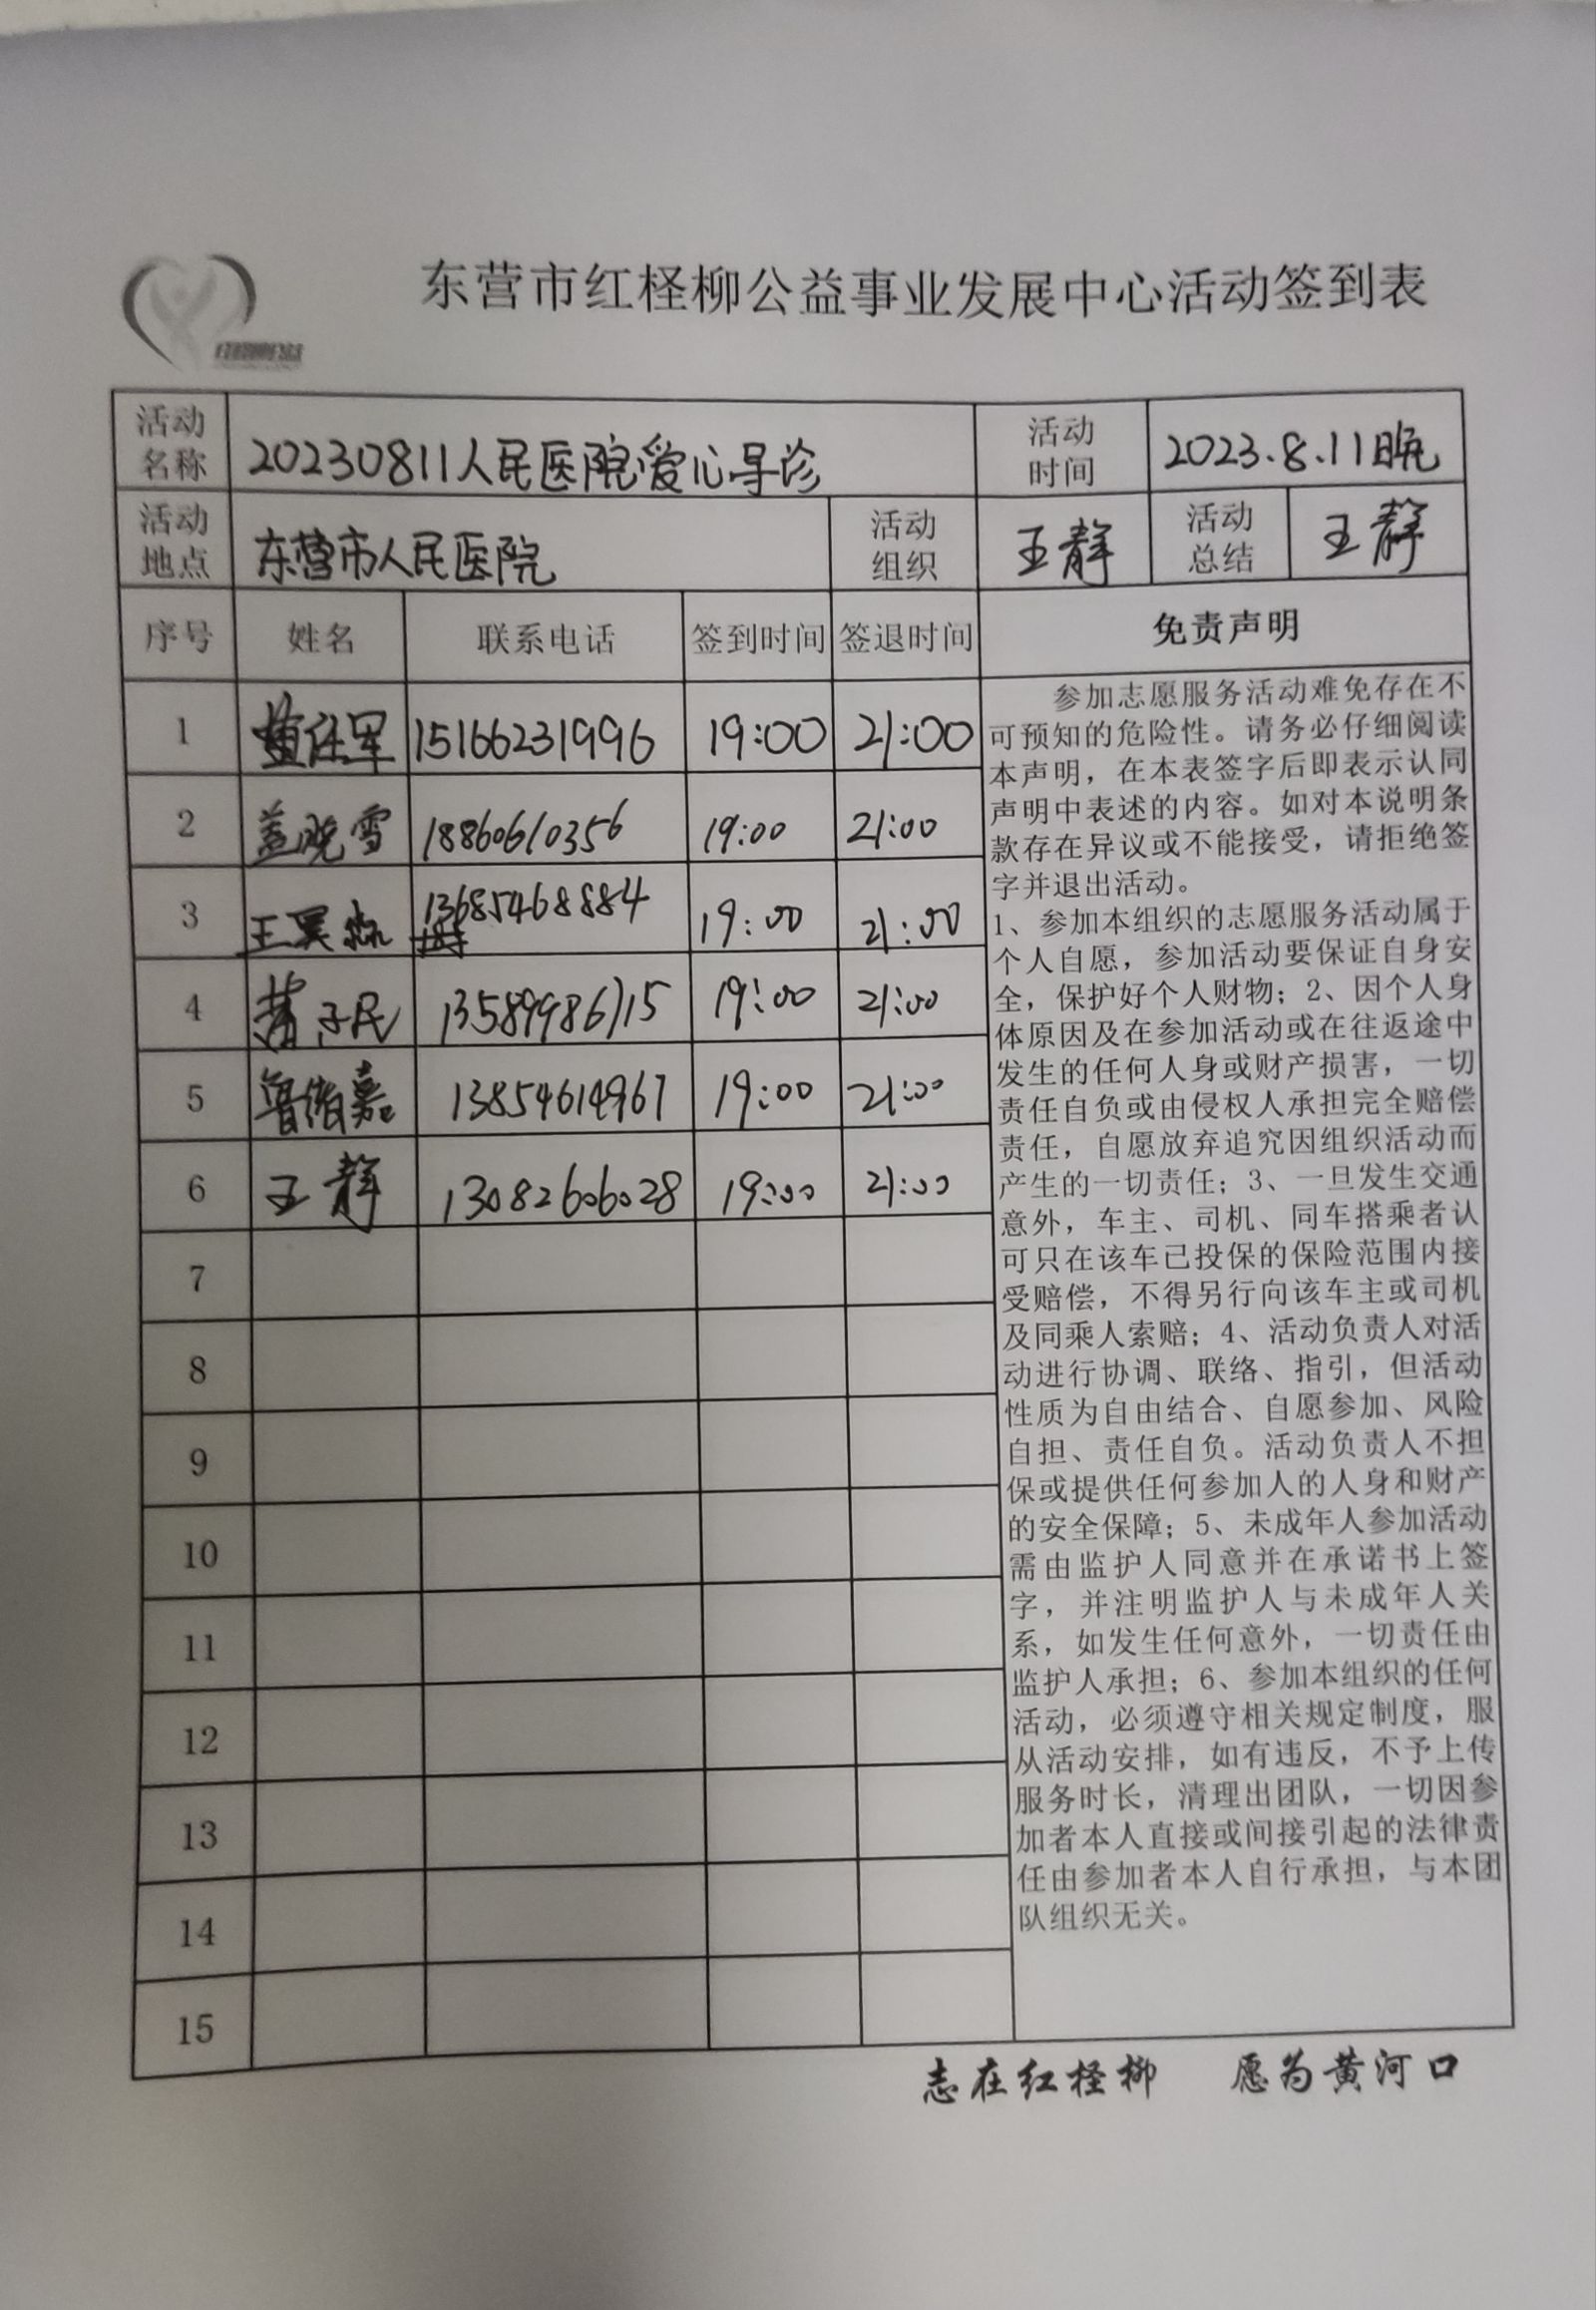 东营市红柽柳公益事业发展中心活动签到表
活动名称 20230811人民医院爱心导诊 活动时间 2023.8.11晚
活动地点 东营市人民医院 活动组织 王静 活动总结 王静
序号 姓名 联系电话 签到时间 签退时间 免责声明
1 15166231996 19:00 21:00
2 盖晓雪 18860610356 19:00 21:00
3 13685468884 19:00 21:00
4 13589986715 19:00 21:00
5 13854614967 19:00 21:00
6 王静 13082606028 19:00 21:00
7
8
9
10
11
12
13
14
15
参加志愿服务活动难免存在不
可预知的危险性。请务必仔细阅读
本声明，在本表签字后即表示认同
声明中表述的内容。如对本说明条
款存在异议或不能接受，请拒绝签
字并退出活动。
1、参加本组织的志愿服务活动属于
个人自愿，参加活动要保证自身安
全，保护好个人财物；2、因个人身
体原因及在参加活动或在往返途中
发生的任何人身或财产损害，一切
责任自负或由侵权人承担完全赔偿
责任，自愿放弃追究因组织活动而
产生的一切责任；3、一旦发生交通
意外，车主、司机、同车搭乘者认
可只在该车已投保的保险范围内接
受赔偿，不得另行向该车主或司机
及同乘人索赔；4、活动负责人对活
动进行协调、联络、指引，但活动
性质为自由结合、自愿参加、风险
自担、责任自负。活动负责人不担
保或提供任何参加人的人身和财产
的安全保障；5、未成年人参加活动
需由监护人同意并在承诺书上签
字，并注明监护人与未成年人关
系，如发生任何意外，一切责任由
监护人承担；6、参加本组织的任何
活动，必须遵守相关规定制度，服
从活动安排，如有违反，不予上传
服务时长，清理出团队，一切因参
加者本人直接或间接引起的法律责
任由参加者本人自行承担，与本团
队组织无关。
志在红柽柳 愿为黄河口